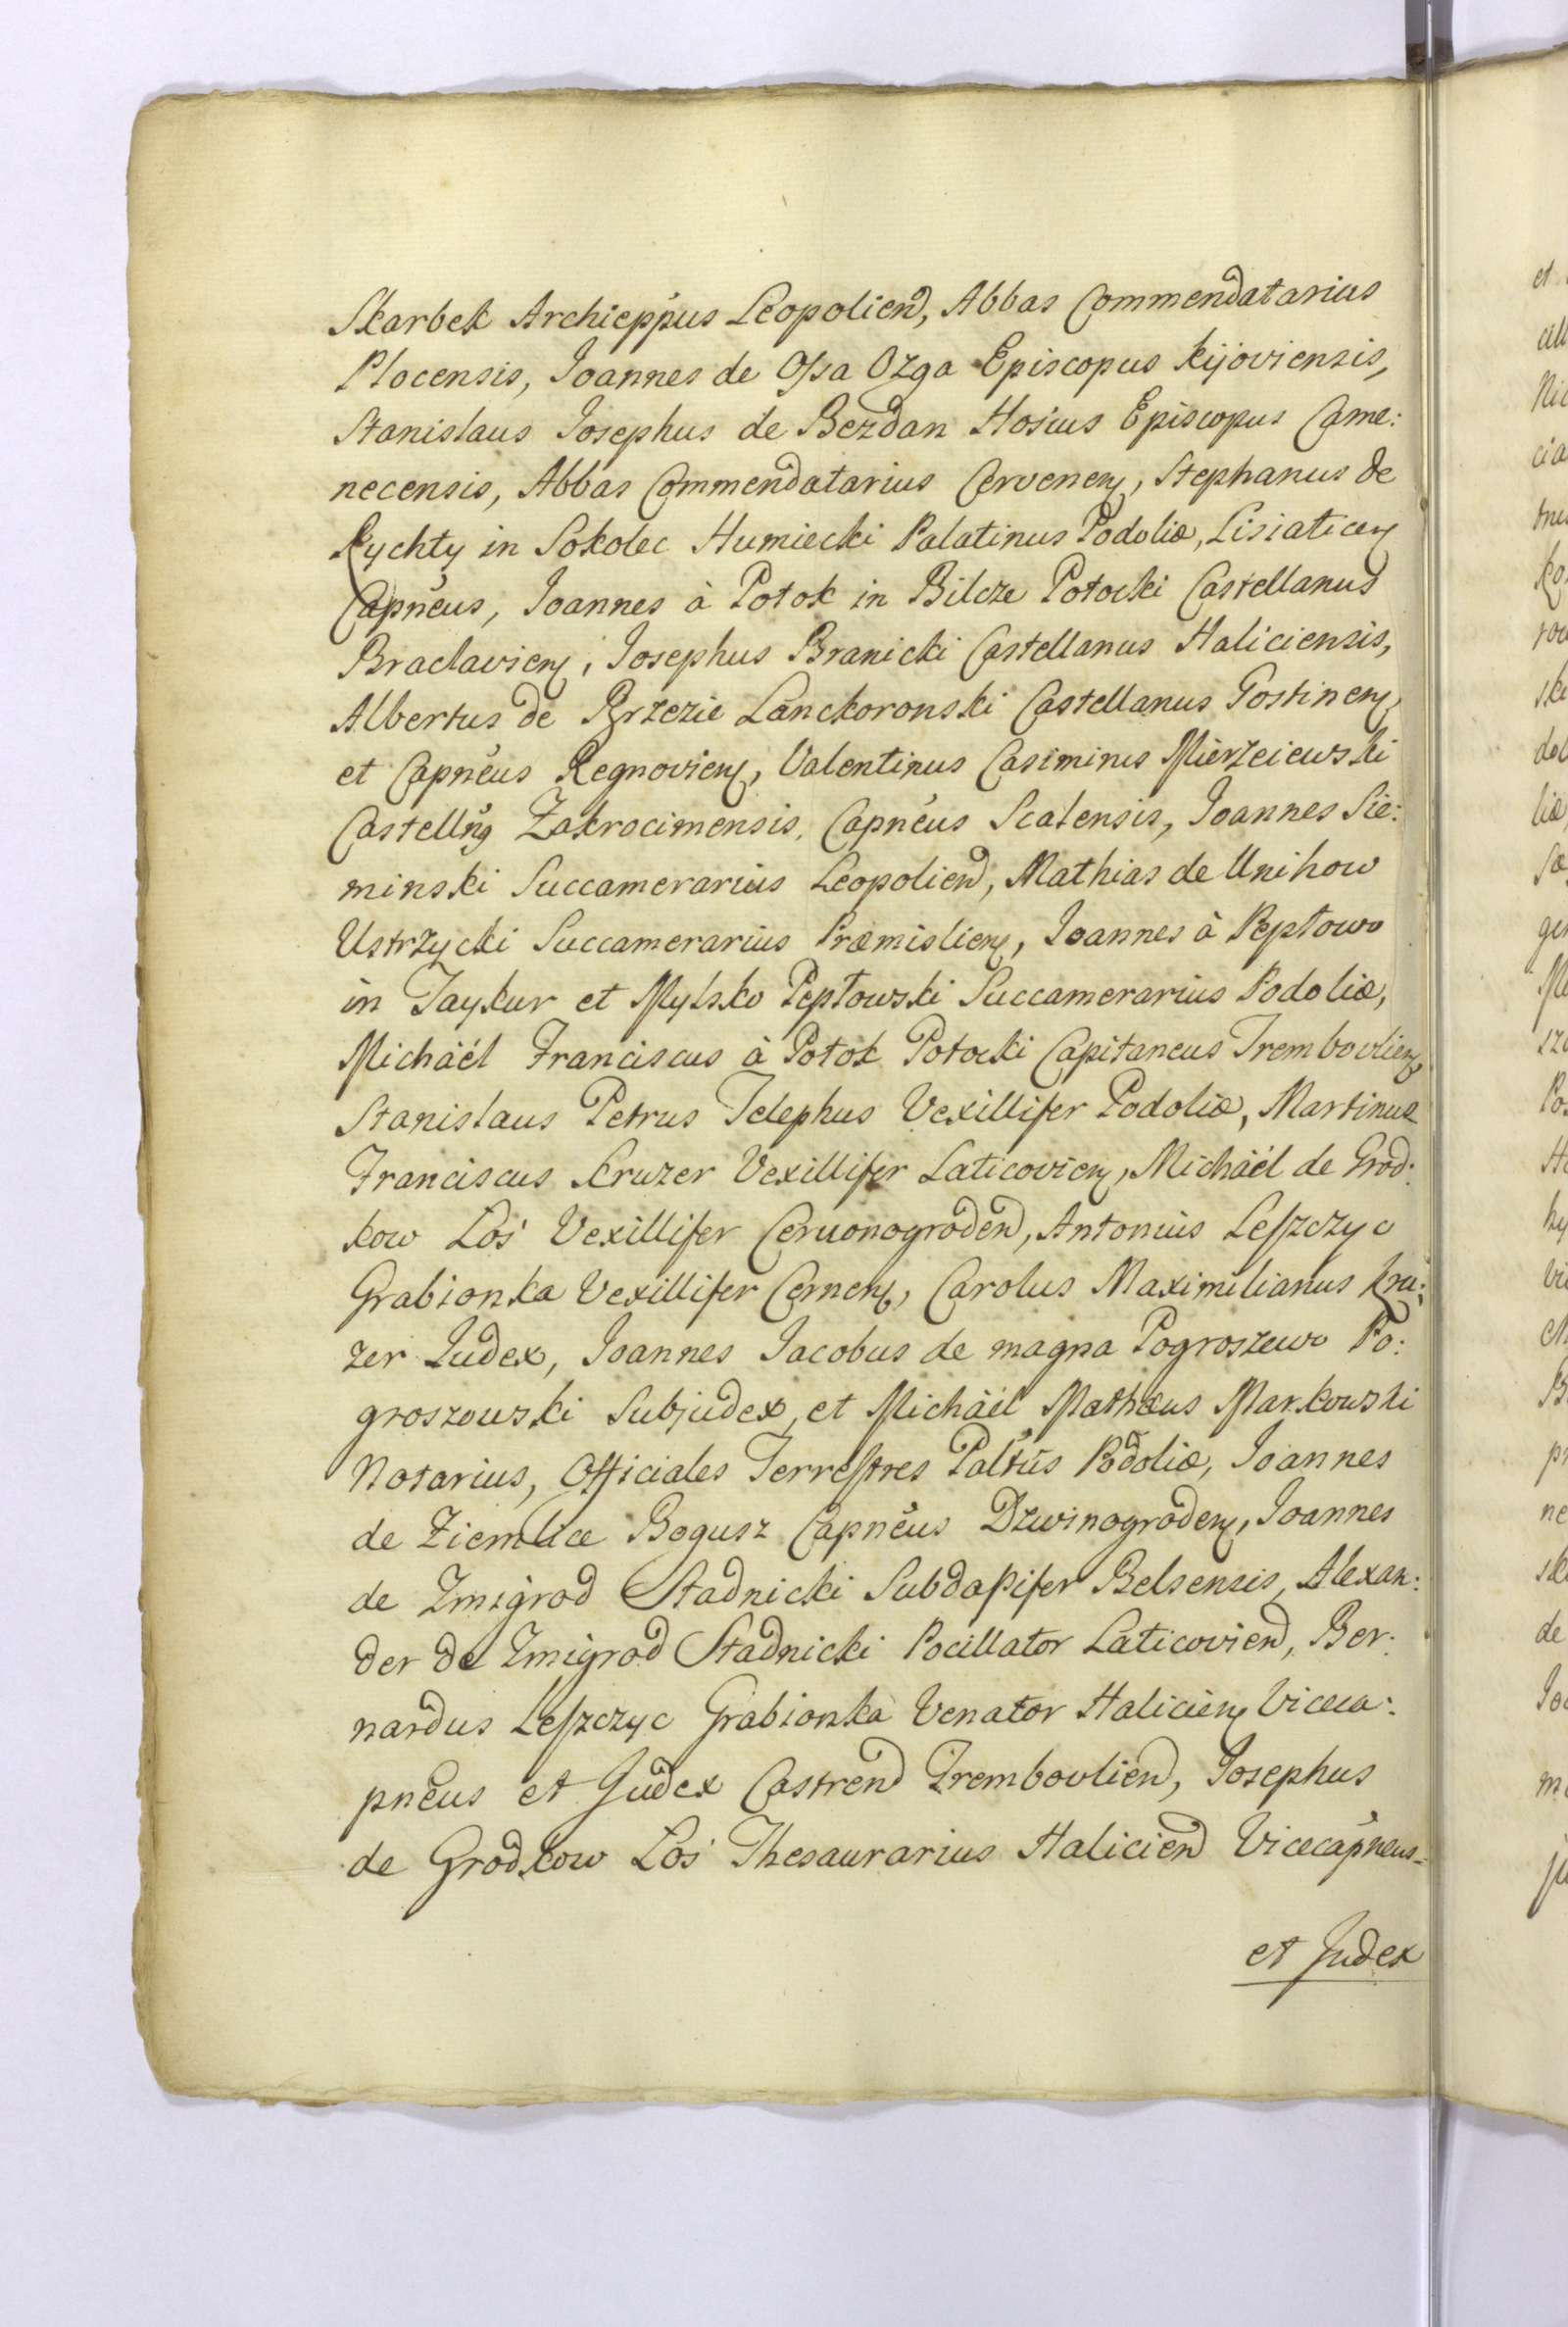 Skarbek Archieppus Leopolien, Abbas Commendatarius
Plocensis, Joannes de Ossa Ozga Episcopus Kijoviensis,
Stanislaus Josephus de Bezdan Hosius Episcopus Came:
necensis, Abbas Commendatarius Cervenen, Stephanus de
Rychty in Sokolec Humiecki Palatinus Podoliæ, Lisiaticen
Capneus, Joannes à Potok in Bilcze Potocki Castellanus
Braclavien, Josephus Branicki Castellanus Haliciensis,
Albertus de Brzezie Lanckoronski Castellanus Gostinen,
et Capneus Regnovien, Valentinus Casimirus Mierzeiewski
Castellng Zakrocimensis, Capneus Scalensis, Joannes Sie:
minski Succamerarius Leopolien, Mathias de Unihow
Ustrzycki Succamerarius Præmislien, Joannes à Peptowo
in Taykur et Mylsko Peptowski Succamerarius Podoliæ,
Michäel Franciscus à Potok Potocki Capitaneus Trembovlien,
Stanislaus Petrus Telephus Vexillifer Podoliæ, Martinus
Franciscus Kruzer Vexillifer Laticovien, Michäel de Grod:
kow Łoś Vexillifer Cervonogroden, Antonius Leszczyc
Grabionka Vexillifer Cernen, Carolus Maximilianus Kru:
zer Judex, Joannes Jacobus de magna Pogroszewo Po:
groszewski Subjudex, et Michäel Mathæus Markowski
Notarius, Officiales Terrestres Paltus Podoliæ, Joannes
de Ziemblice Bogusz Capneus Dzwinogroden, Joannes
de Zmigrod Stadnicki Subdapifer Belsensis, Alexan:
der de Zmigrod Stadnicki Pocillator Laticovien, Ber:
nardus Leszczyc Grabionka Venator Halicien Viceca:
pneus et Judex Castren Trembovlien, Josephus
de Grodkow Łoś Thesaurarius Halicien Vicecapneus
et Judex